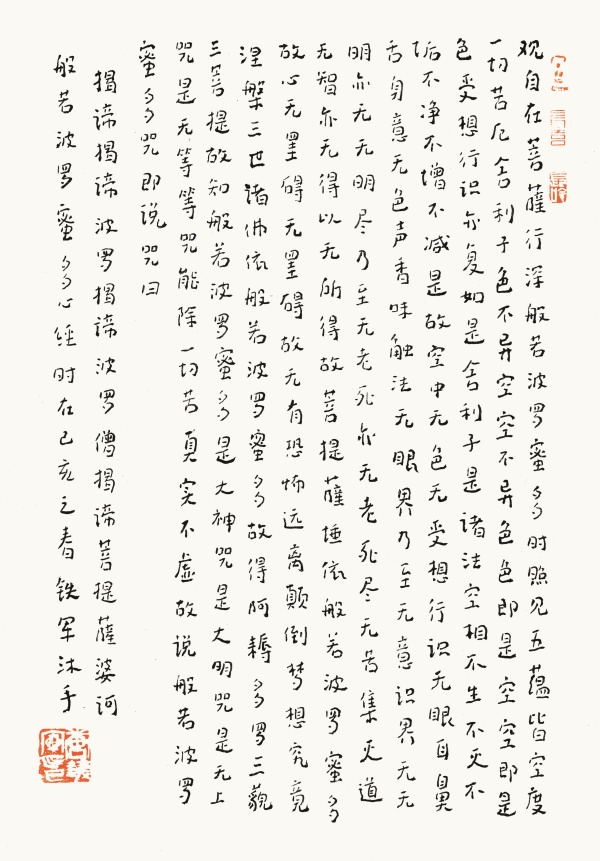 观自在菩薩行深般若波罗蜜多时照见五蕴皆空度
一切苦厄舍利子色不异空空不异色色即是空空即是
色受想行识亦复如是舍利子是诸法空相不生不灭不
垢不净不增不减是故空中无色无受想行识无眼耳鼻
舌身意无色声香味触法无眼界乃至无意识界无无
明亦无无明尽乃至无老死亦无老死尽无苦集灭道
无智亦无得以无所得故菩提薩埵依般若波罗蜜多
故心无罣碍无罣碍故无有恐怖远离颠倒梦想究竟
涅槃三世诸佛依般若波罗蜜多故得阿耨多罗三藐
三菩提故知般若波罗蜜多是大神咒是大明咒是无上
咒是无等等咒能除一切苦真实不虚故说般若波罗
蜜多咒即说咒曰
揭谛揭谛波罗揭谛波罗僧揭谛菩提薩婆诃
般若波罗蜜多心经时在己亥之春铁军沐手